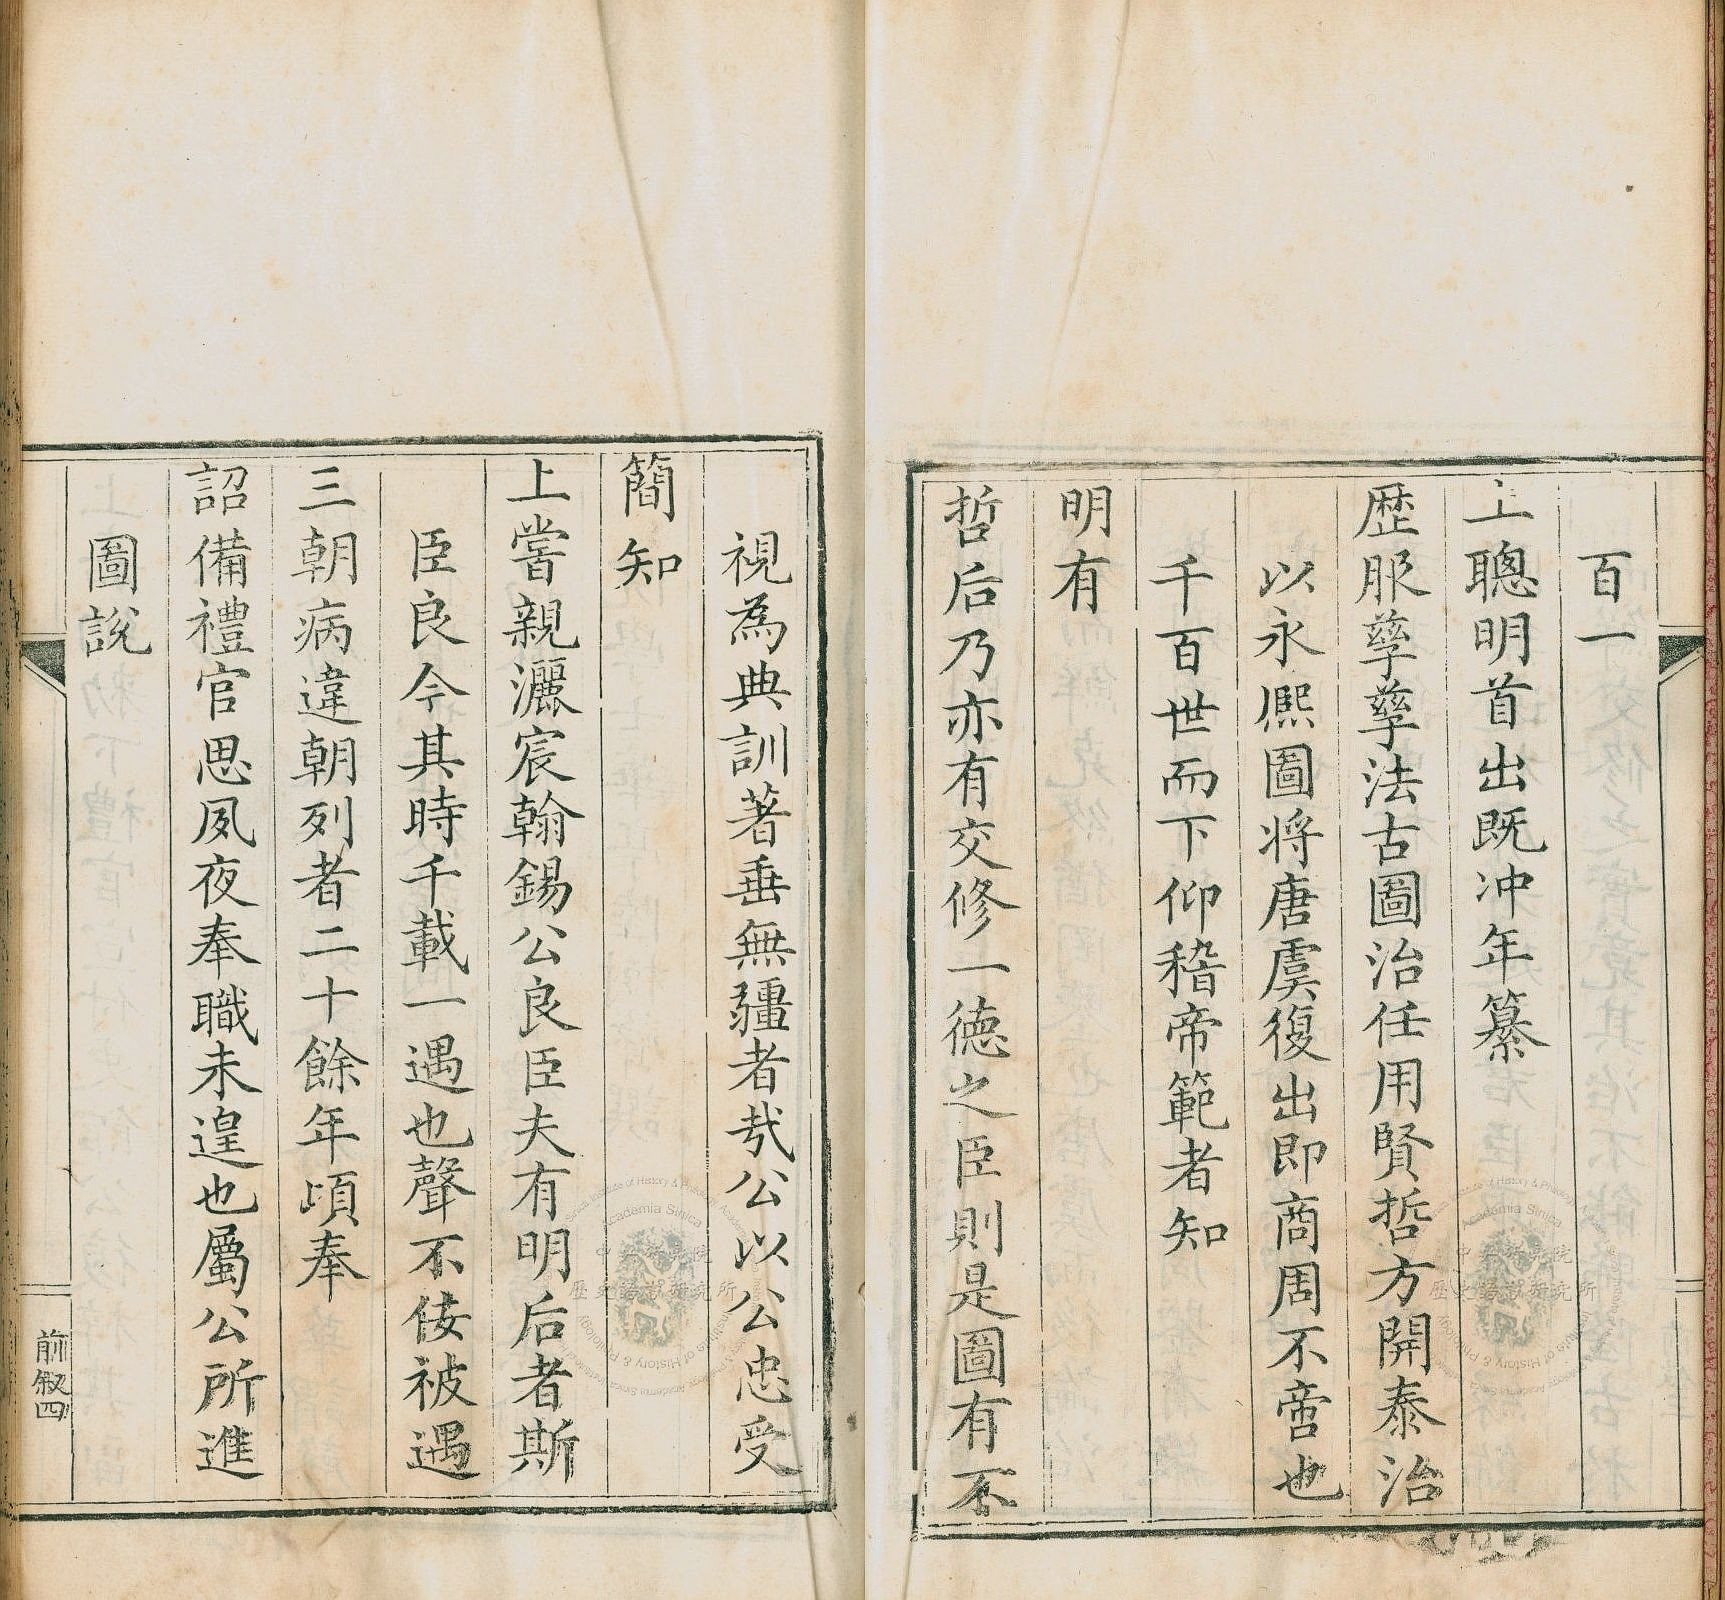 百一
上聰明首出既冲年纂
歷服孳孳法古圖治任用賢哲方開泰治
以永熈圖将唐虞復出即商周不啻也
千百世而下仰稽帝範者知
明有
哲后乃亦有交修一德之臣則是圖有不
視為典訓著垂無疆者哉公以公忠受
簡知
上嘗親灑宸翰錫公良臣夫有明后者斯
臣良今其時千載一遇也聲不佞被遇
三朝病違朝列者二十餘年頃奉
詔備禮官思夙夜奉職未遑也屬公所進
圖說
前叙四
中央研究院
歷史語言研究所
Academia Sinica
Institute of History & Philology
中央研究院
歷史語言研究所
Academia Sinica
Institute of History & Philology